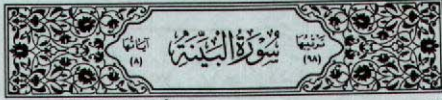 ترتيبها
(٩٨)
سُورَةُ الْبَيِّنَةِ
آياتها
(٨)